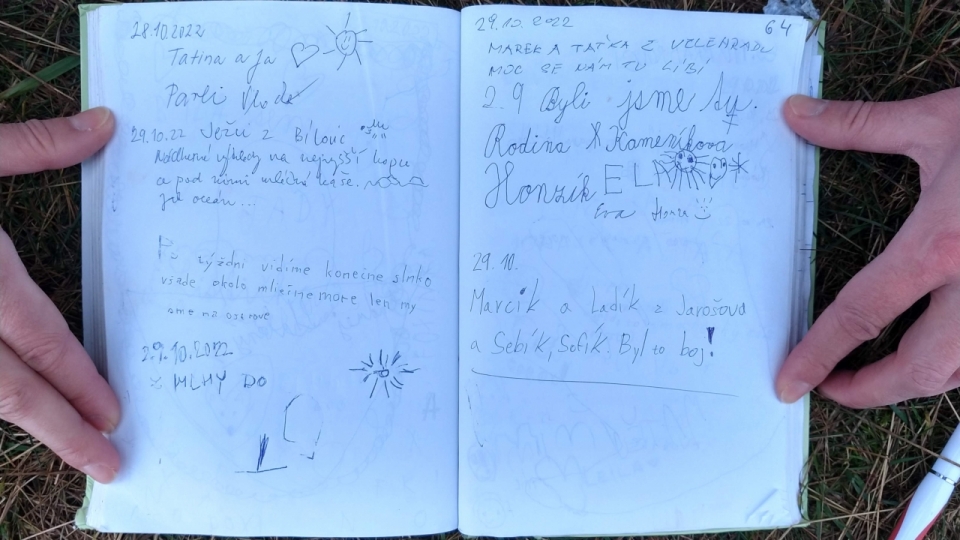 28.10.2022
Tatina a Ja
Pavli
29.10.22 Ježci z Bílovic
výhledy na nejvyšší kopu
a pod námi mléčná kaše.
jak oceán...
Po týždni vidíme konečne slnko
všade okolo mliečne more len my
sme na ostrove
29.10.2022
Z MLHY DO
29.10.2022
64
MAREK A TAŤKA Z VELEHRADU
MOC SE NÁM TU LÍBÍ
2.9 Byli jsme tu.
Rodina Kameníkova
Honzík ELA
Eva Honza
29.10.
Marcik a Ladík z Jarošova
a Sebík, Sofík. Byl to boj!